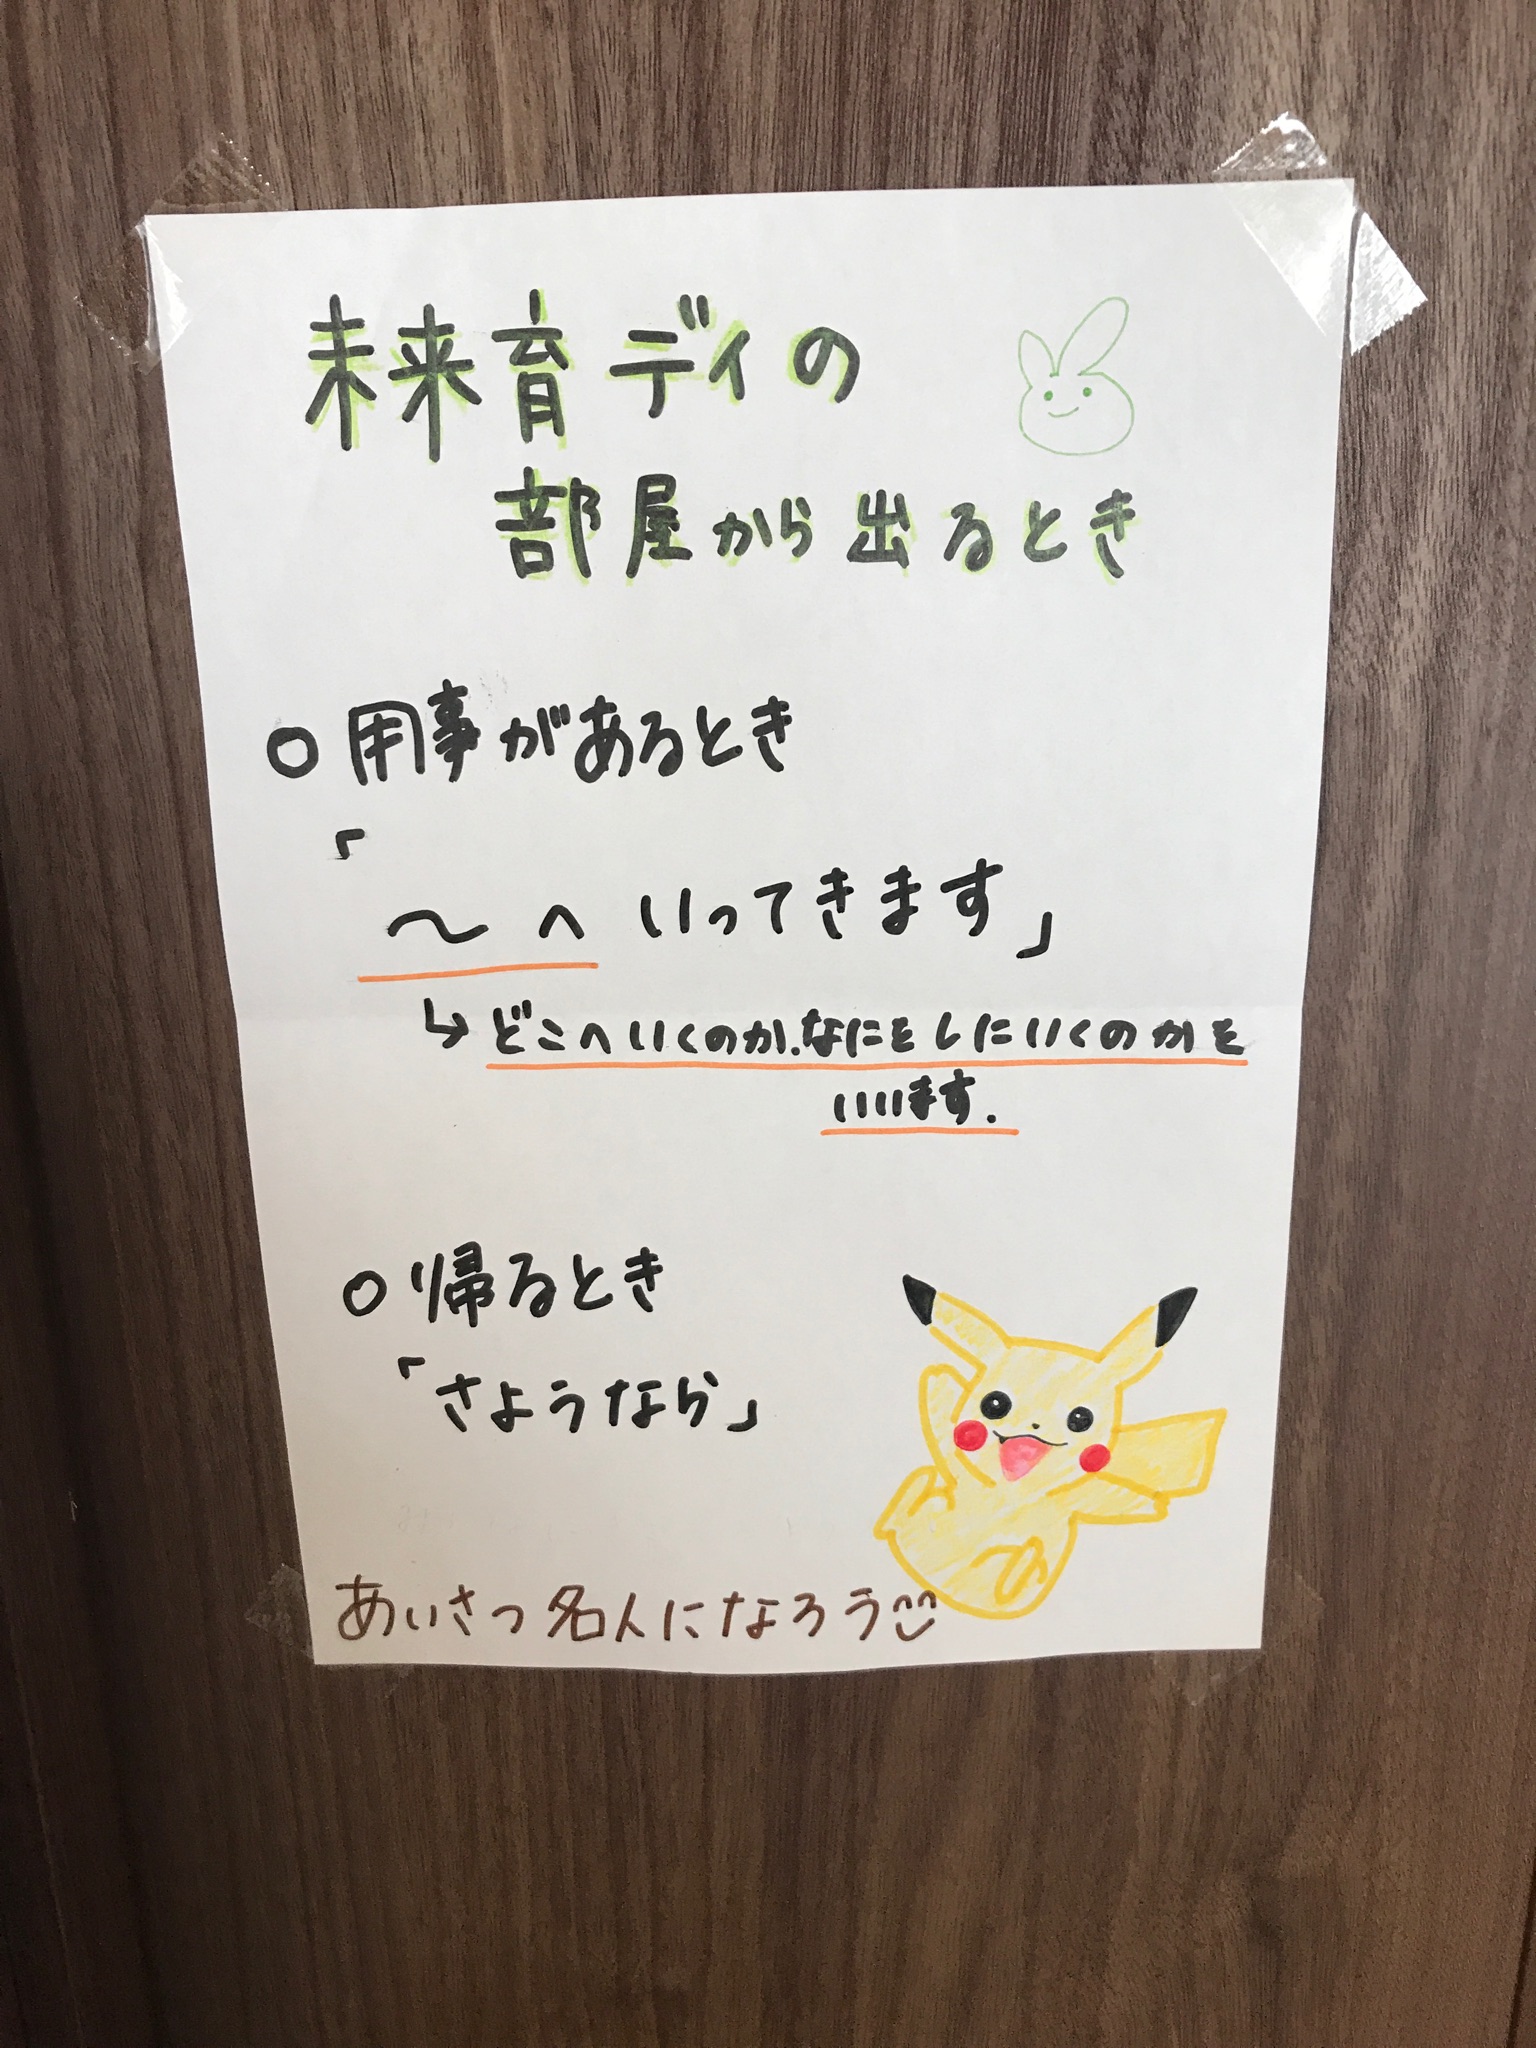 未来育デイの
部屋から出るとき
○用事があるとき
「
〜へ いってきます」
↳どこへいくのか、なにをしにいくのかを
いいます.
○帰るとき
「さようなら」
あいさつ名人になろう